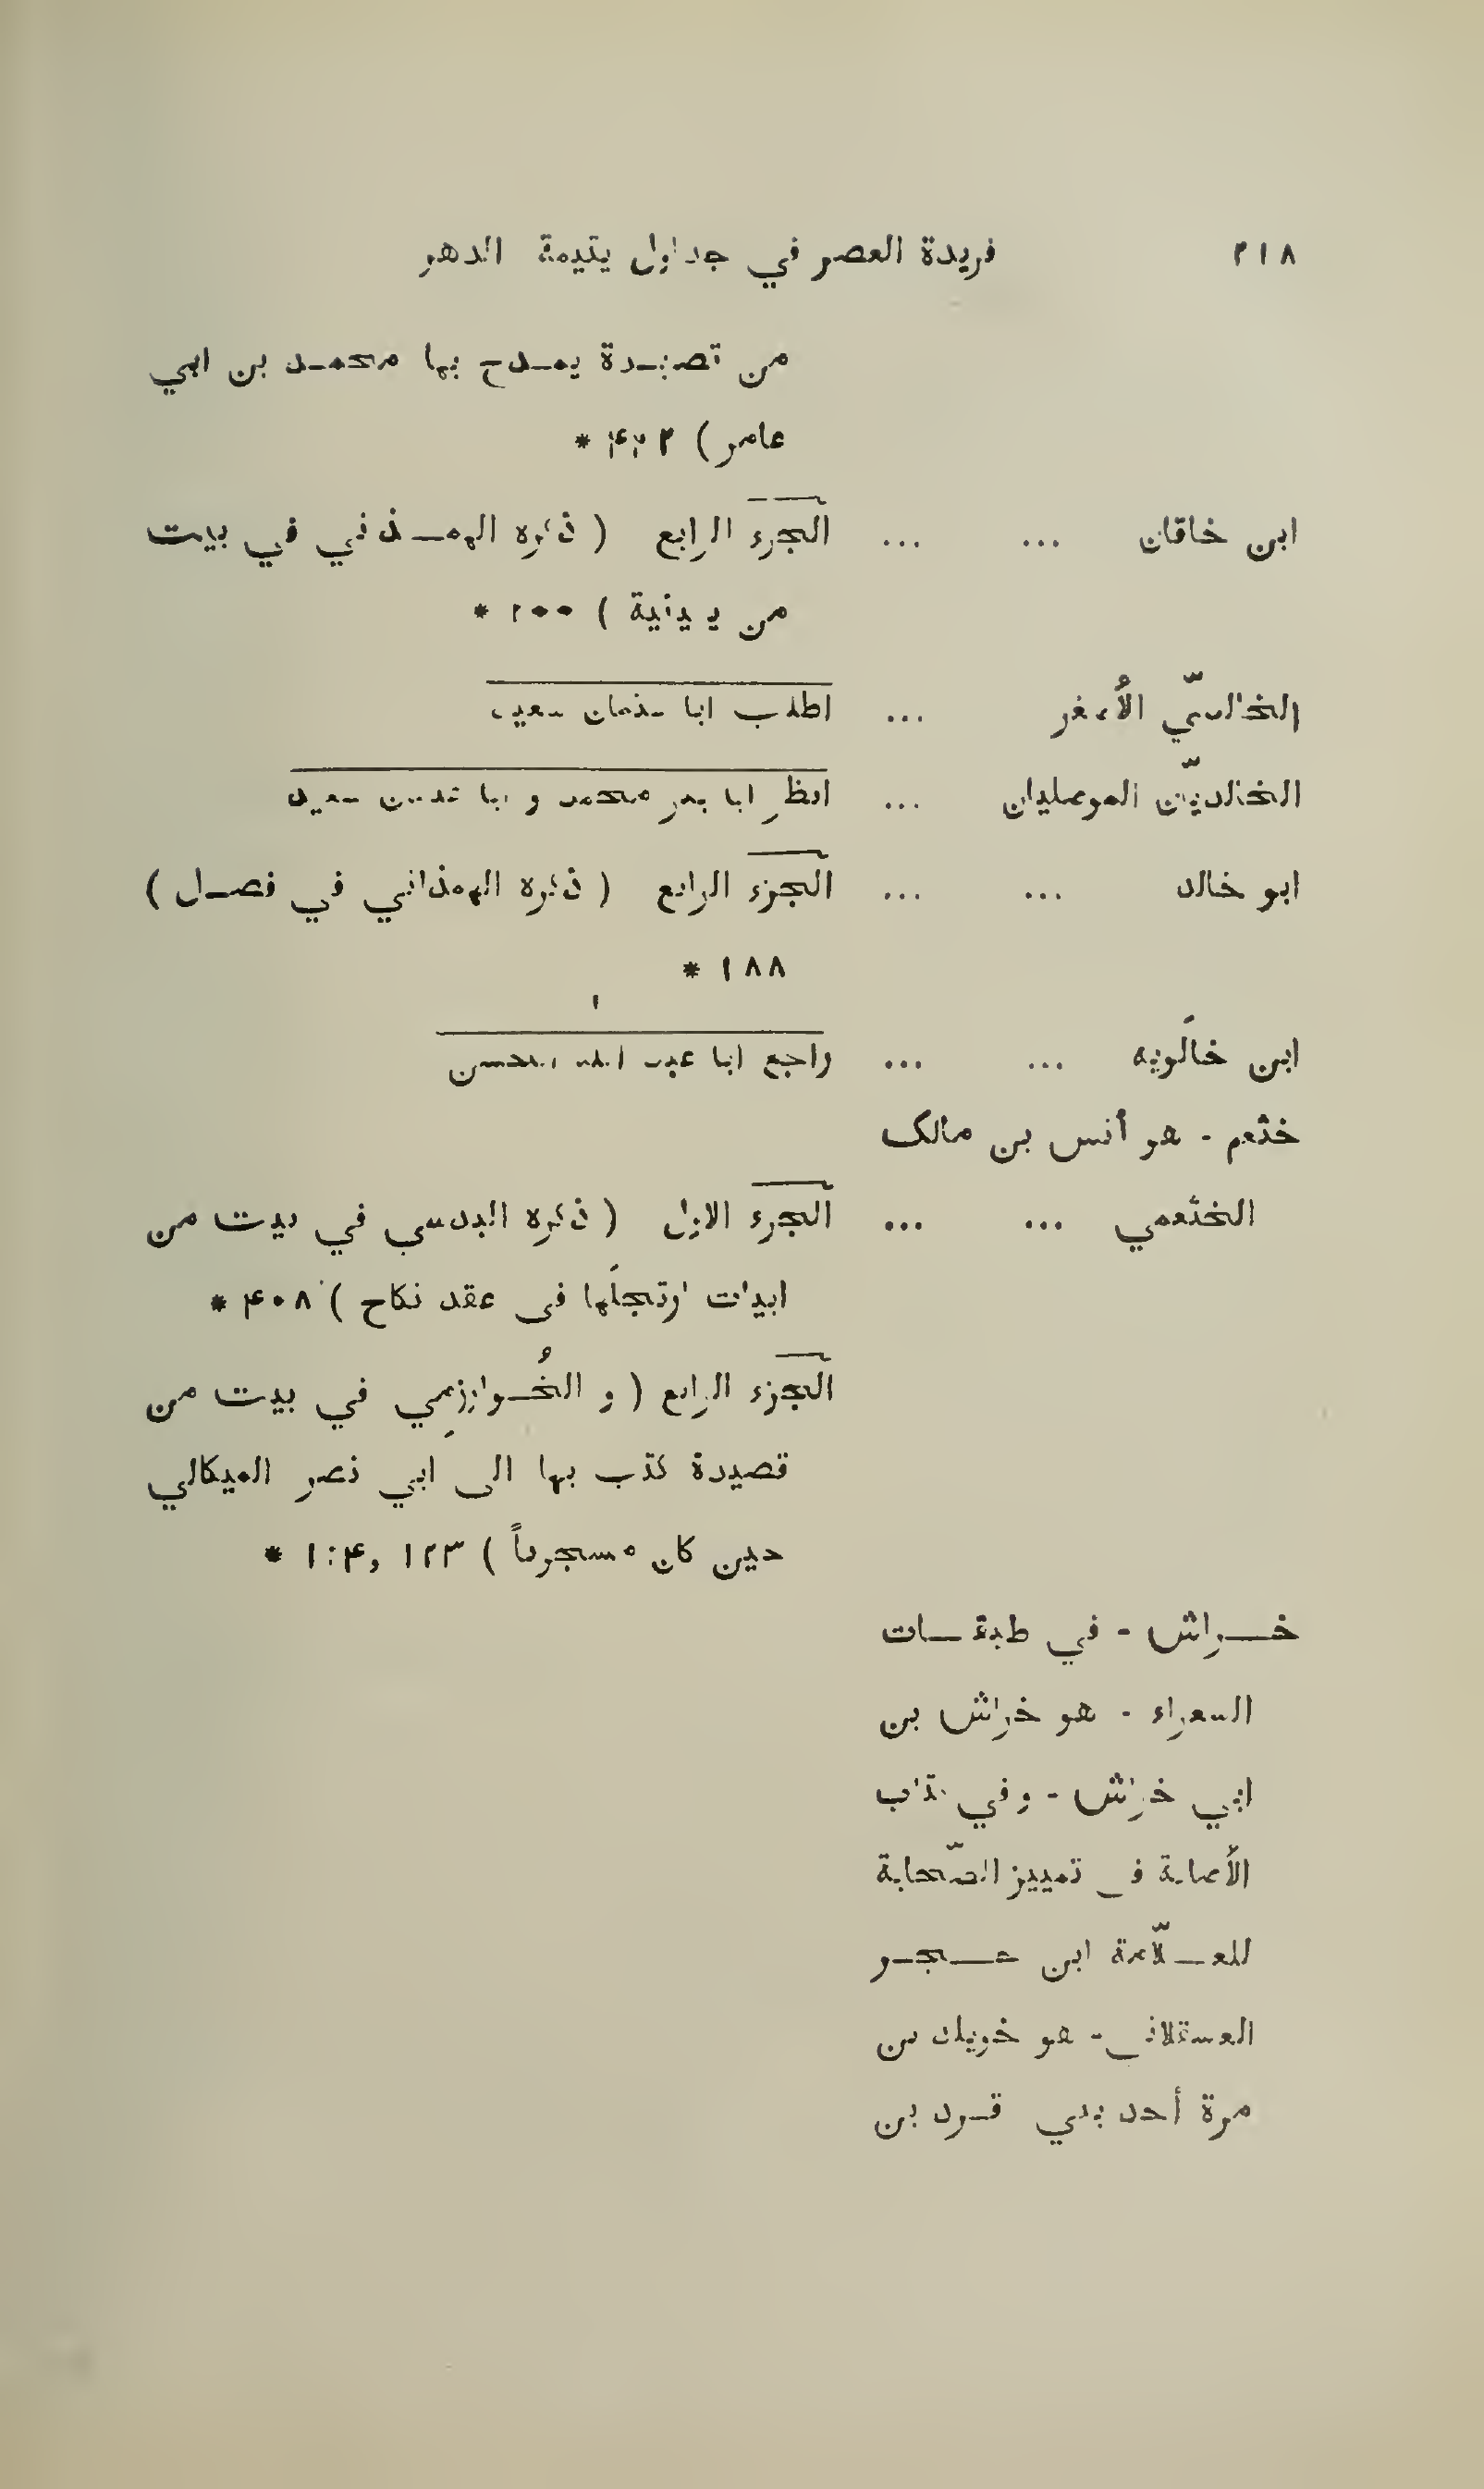 ٢١٨ فريدة العصر في جداول يتيمة الدهر
من قصيدة يمدح بها محمد بن ابي
عامر )  *
ابن خاقان ... ... الجزء الرابع ( ذكره الهمذاني في بيت
من  ) ٢٠٠ *
الخالديّ الأُصغر ... اطلب ابا عثمان سعيد
الخالديّان الموصليان ... انظر ابا بكر محمد و ابا عثمان سعيد
ابو خالد ... ... الجزء الرابع ( ذكره الهمذاني في فصل )
١٨٨ *
ابن خالَويه ... ... راجع ابا عبد الله الحسن
خثعم - هو أنس بن مالك
الخثعمي ... ... الجزء الاول ( ذكره  في بيت من
ابيات ارتجلَها في عقد نكاح ) ۴٠٨ *
الجزء الرابع ( و الخُوارزمِي في بيت من
قصيدة كتب بها الى ابي نصر الميكالي
حين كان  ) ١٢٣ ,  *
خراش - في طبقات
الشعراء - هو خراش بن
ابي خراش - و في كتاب
الأصابة في تمييز الصّحابة
للعلّامة ابن حجر
العسقلاني - هو خويلد بن
مرة أحد بني قرد بن